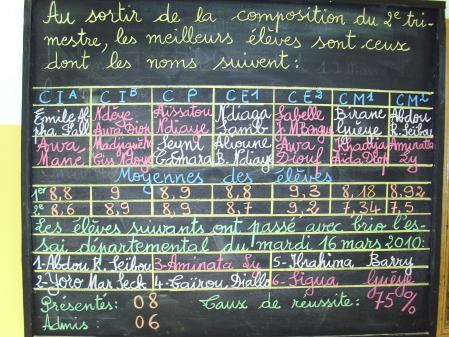 Au sortir de la composition du 2e tri-
mestre, les meilleurs élèves sont ceux
dont les noms suivent:
CIA CIB CP CE1 CE2 CM1 CM2
Émile Ndèye Aïssatou Ndiaga Isabelle Birane Abdou
Awa Diop Ndiaye Samb Guèye R. Seibou
Awa Seyni Alioune Awa Khadija Aminata
Mane Camara B. Ndiaye Diouf Aïda Diop Ly
Moyennes des élèves
1er 8,8 9 8,9 8,8 9,3 8,18 8,92
2e 8,6 8,9 8,9 8,7 9,2 7,34 7,5
Les élèves suivants ont passé avec brio l'es-
sai départemental du mardi 16 mars 2010:
1-Abdou R. Seibou 3-Aminata Ly 5-Ibrahima Barry
2-Yoro Mar Seck 4-Caïrou Diallo 6-Sigua Guèye
Présentés: 08 Taux de réussite: 75%
Admis: 06